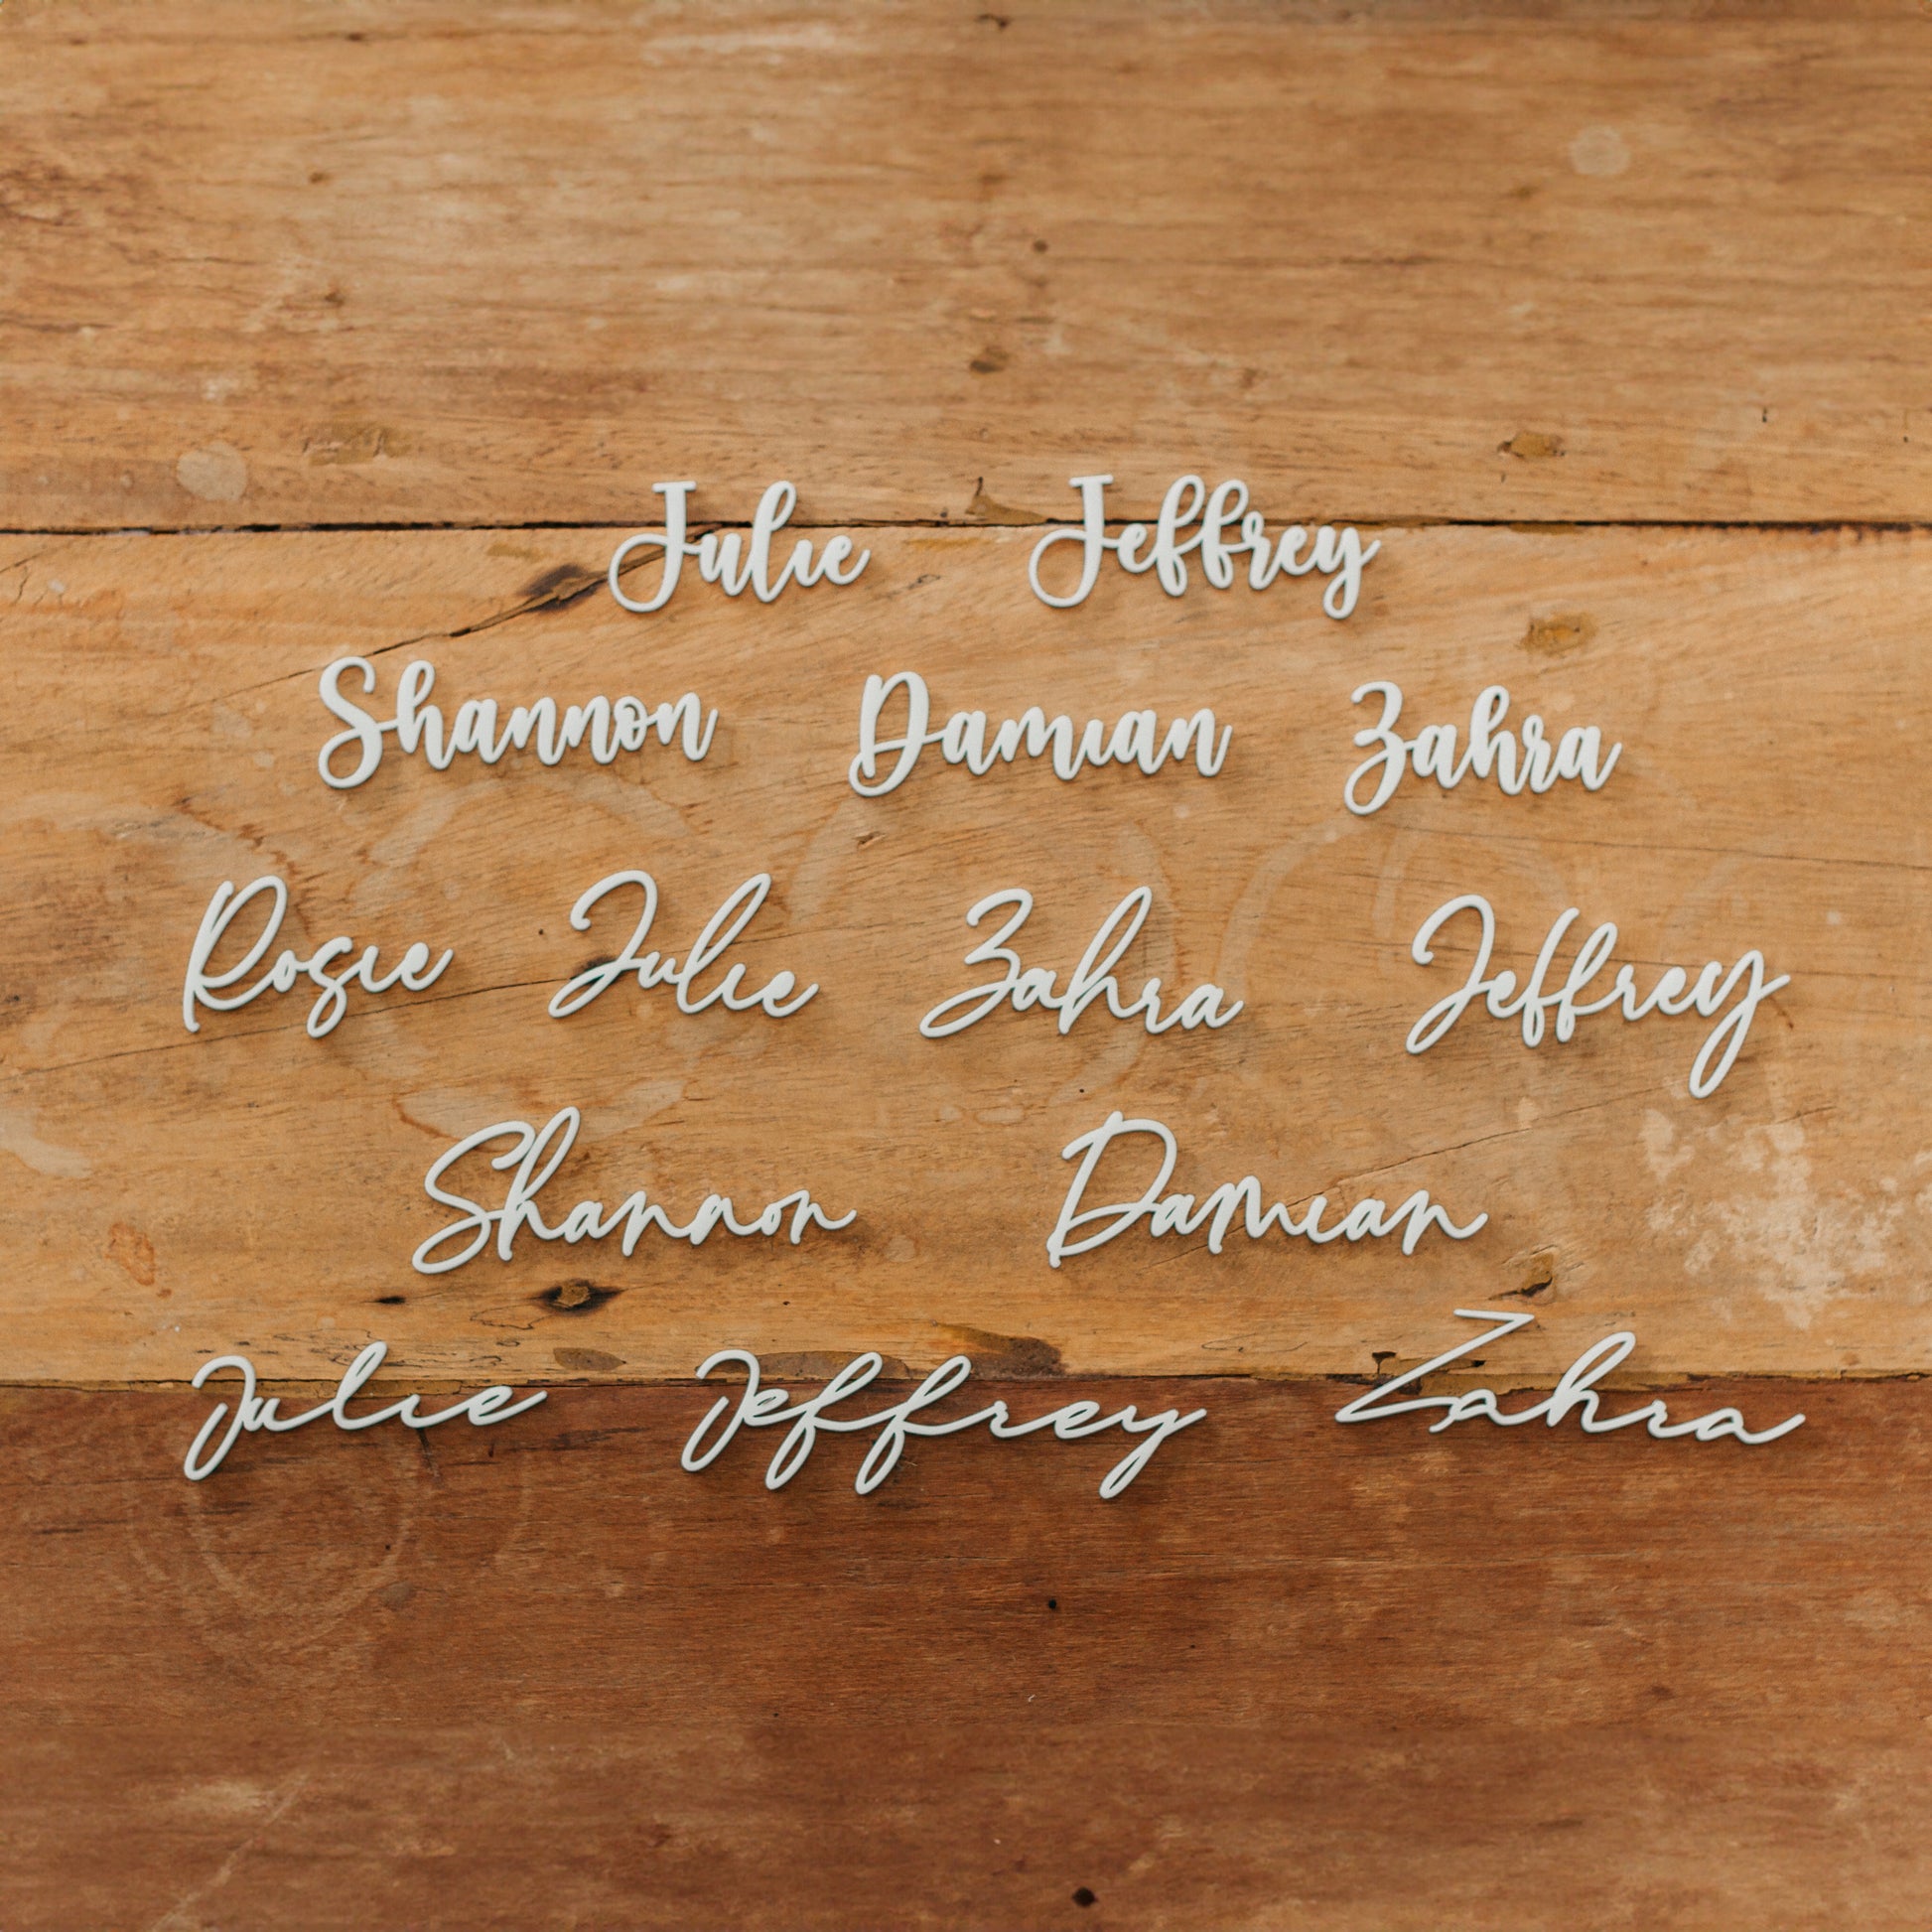 Julie Jeffrey
Shannon Damian Zahra
Rosie Julie Zahra Jeffrey
Shannon Damian
Julie Jeffrey Zahra